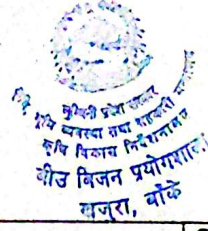 लुम्बिनी प्रदेश सरकार
कृषि, भूमि व्यवस्था तथा सहकारी मन्त्रालय
कृषि विकास निर्देशनालय
बीउ बिजन प्रयोगशाला
खजुरा, बाँके